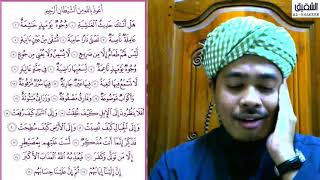 أعوذ بالله من الشيطان الرجيم
هَلْ أَتَىٰكَ حَدِيثُ الْغَٰشِيَةِ ۝ وُجُوهٌ يَوْمَئِذٍ خَٰشِعَةٌ ۝
عَامِلَةٌ نَّاصِبَةٌ ۝ تَصْلَىٰ نَارًا حَامِيَةً ۝ تُسْقَىٰ مِنْ عَيْنٍ ءَانِيَةٍ ۝
لَّيْسَ لَهُمْ طَعَامٌ إِلَّا مِن ضَرِيعٍ ۝ لَّا يُسْمِنُ وَلَا يُغْنِي مِن جُوعٍ ۝
وُجُوهٌ يَوْمَئِذٍ نَّاعِمَةٌ ۝ لِّسَعْيِهَا رَاضِيَةٌ ۝ فِي جَنَّةٍ عَالِيَةٍ ۝
لَّا تَسْمَعُ فِيهَا لَٰغِيَةً ۝ فِيهَا عَيْنٌ جَارِيَةٌ ۝ فِيهَا سُرُرٌ مَّرْفُوعَةٌ ۝
وَأَكْوَابٌ مَّوْضُوعَةٌ ۝ وَنَمَارِقُ مَصْفُوفَةٌ ۝ وَزَرَابِيُّ مَبْثُوثَةٌ ۝
أَفَلَا يَنظُرُونَ إِلَى الْإِبِلِ كَيْفَ خُلِقَتْ ۝ وَإِلَى السَّمَاءِ كَيْفَ رُفِعَتْ ۝
وَإِلَى الْجِبَالِ كَيْفَ نُصِبَتْ ۝ وَإِلَى الْأَرْضِ كَيْفَ سُطِحَتْ ۝
فَذَكِّرْ إِنَّمَا أَنتَ مُذَكِّرٌ ۝ لَّسْتَ عَلَيْهِم بِمُصَيْطِرٍ ۝
إِلَّا مَن تَوَلَّىٰ وَكَفَرَ ۝ فَيُعَذِّبُهُ اللَّهُ الْعَذَابَ الْأَكْبَرَ ۝
إِنَّ إِلَيْنَا إِيَابَهُمْ ۝ ثُمَّ إِنَّ عَلَيْنَا حِسَابَهُم